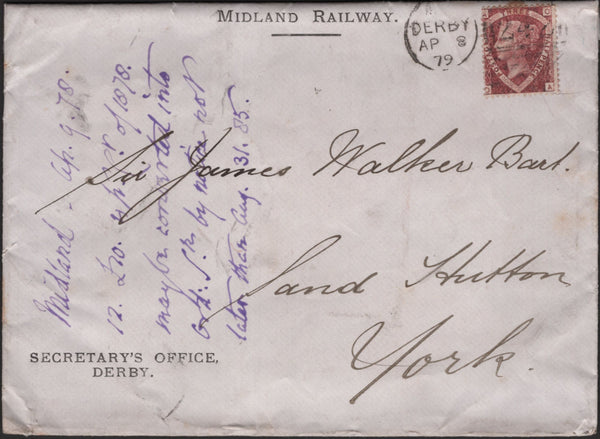 MIDLAND RAILWAY.
DERBY
AP 8
79
THREE
HALFPENCE
Sir James Walker Bart.
Sand Hutton
York.
SECRETARY'S OFFICE,
DERBY.
Midland - Ap. 9. 78.
12. of 1878.
may be converted into
Ord. by notice not
later than Aug. 31. 85.